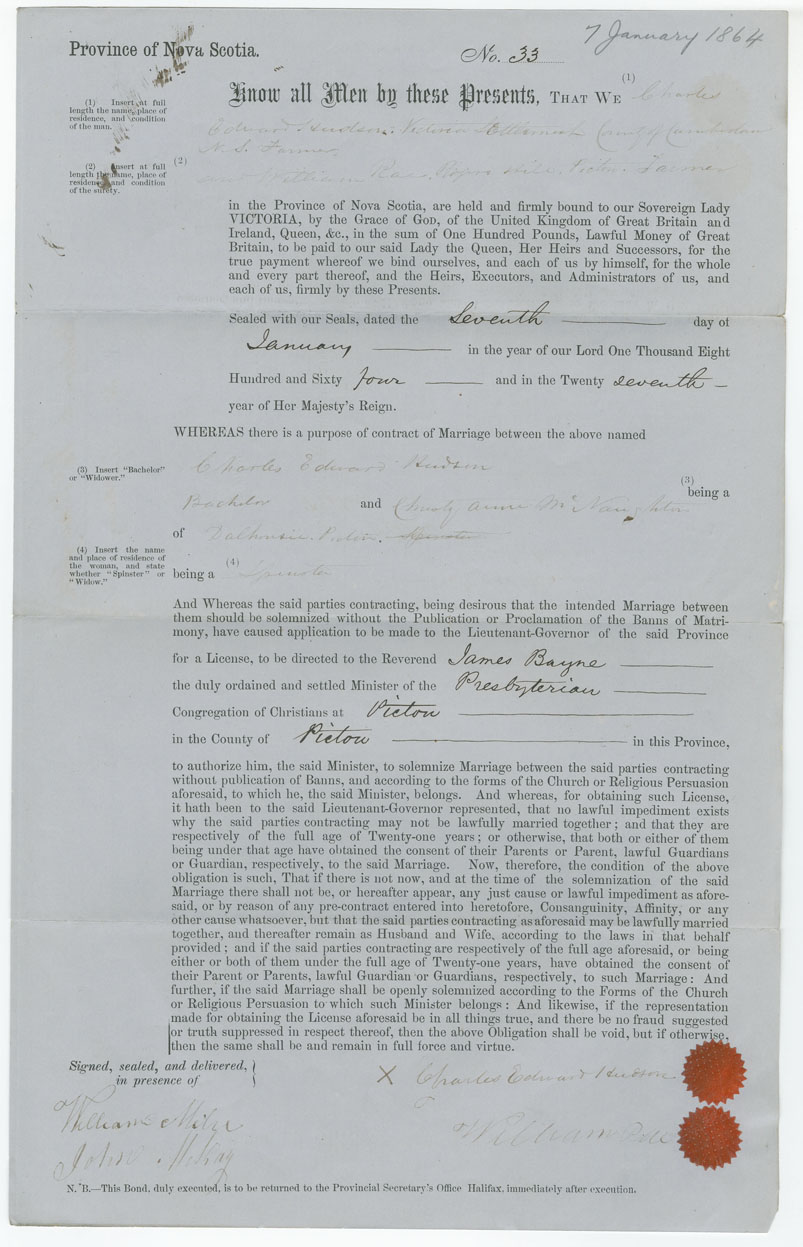 7 January 1864
Province of Nova Scotia.
No. 33
Know all Men by these Presents, THAT WE (1) Charles
(1) Insert at full length the name, place of residence, and condition of the man.
Edward Hudson, Victoria Settlement County of Cumberland
N. S. Farmer
(2) Insert at full length the name, place of residence and condition of the surety.
(2) and William Rae, Rogers Hill, Pictou. Farmer
in the Province of Nova Scotia, are held and firmly bound to our Sovereign Lady
VICTORIA, by the Grace of God, of the United Kingdom of Great Britain and
Ireland, Queen, &c., in the sum of One Hundred Pounds, Lawful Money of Great
Britain, to be paid to our said Lady the Queen, Her Heirs and Successors, for the
true payment whereof we bind ourselves, and each of us by himself, for the whole
and every part thereof, and the Heirs, Executors, and Administrators of us, and
each of us, firmly by these Presents.
Sealed with our Seals, dated the Seventh day of
January in the year of our Lord One Thousand Eight
Hundred and Sixty four and in the Twenty seventh
year of Her Majesty's Reign.
WHEREAS there is a purpose of contract of Marriage between the above named
(3) Insert "Bachelor" or "Widower."
Charles Edward Hudson
(3) being a
Bachelor and Christy Anne McNaughton
of Dalhousie. Pictou. Spinster
(4) Insert the name and place of residence of the woman, and state whether "Spinster" or "Widow."
being a (4) Spinster
And Whereas the said parties contracting, being desirous that the intended Marriage between
them should be solemnized without the Publication or Proclamation of the Banns of Matri-
mony, have caused application to be made to the Lieutenant-Governor of the said Province
for a License, to be directed to the Reverend James Bayne
the duly ordained and settled Minister of the Presbyterian
Congregation of Christians at Pictou
in the County of Pictou in this Province,
to authorize him, the said Minister, to solemnize Marriage between the said parties contracting
without publication of Banns, and according to the forms of the Church or Religious Persuasion
aforesaid, to which he, the said Minister, belongs. And whereas, for obtaining such License,
it hath been to the said Lieutenant-Governor represented, that no lawful impediment exists
why the said parties contracting may not be lawfully married together; and that they are
respectively of the full age of Twenty-one years; or otherwise, that both or either of them
being under that age have obtained the consent of their Parents or Parent, lawful Guardians
or Guardian, respectively, to the said Marriage. Now, therefore, the condition of the above
obligation is such, That if there is not now, and at the time of the solemnization of the said
Marriage there shall not be, or hereafter appear, any just cause or lawful impediment as afore-
said, or by reason of any pre-contract entered into heretofore, Consanguinity, Affinity, or any
other cause whatsoever, but that the said parties contracting as aforesaid may be lawfully married
together, and thereafter remain as Husband and Wife, according to the laws in that behalf
provided; and if the said parties contracting are respectively of the full age aforesaid, or being
either or both of them under the full age of Twenty-one years, have obtained the consent of
their Parent or Parents, lawful Guardian or Guardians, respectively, to such Marriage: And
further, if the said Marriage shall be openly solemnized according to the Forms of the Church
or Religious Persuasion to which such Minister belongs: And likewise, if the representation
made for obtaining the License aforesaid be in all things true, and there be no fraud suggested
or truth suppressed in respect thereof, then the above Obligation shall be void, but if otherwise,
then the same shall be and remain in full force and virtue.
Signed, sealed, and delivered, in presence of
X Charles Edward Hudson
William Milne
William Rae
John McKay
N. B.—This Bond, duly executed, is to be returned to the Provincial Secretary's Office Halifax, immediately after execution.